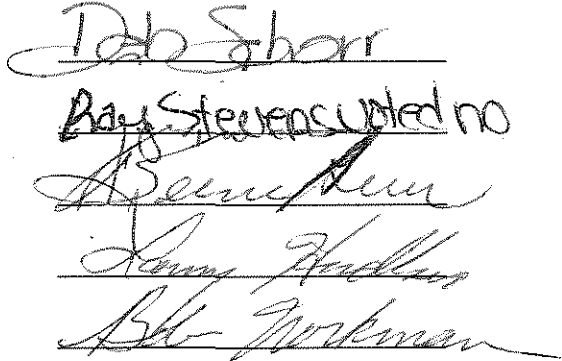 Deb Schorr
Ray Stevens voted no
Bernie Heier
Larry Hudkins
Bob Workman